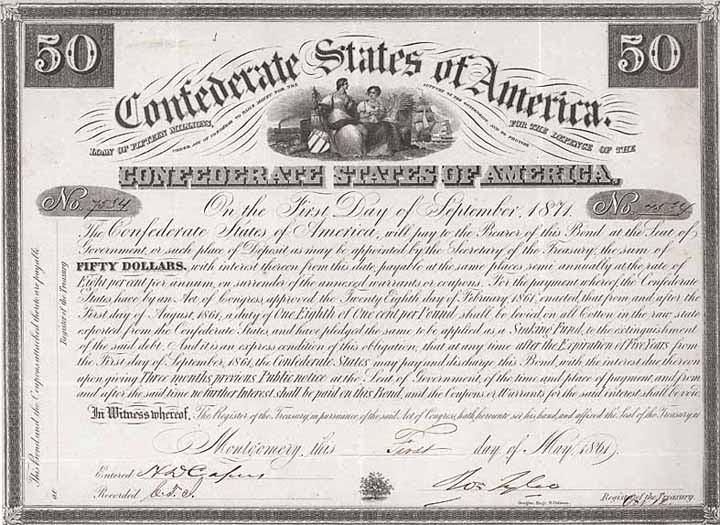 50
50
Confederate States of America.
LOAN OF FIFTEEN MILLIONS,
UNDER ACT OF CONGRESS TO RAISE MONEY FOR THE SUPPORT OF THE GOVERNMENT AND TO PROVIDE
FOR THE DEFENCE OF THE
CONFEDERATE STATES OF AMERICA.
No. 7534
No. 7534
On the First Day of September, 1871.
The Confederate States of America, will pay to the Bearer of this Bond at the Seat of
Government, or such place of Deposit as may be appointed by the Secretary of the Treasury, the sum of
FIFTY DOLLARS, with interest thereon from this date, payable at the same places semi annually at the rate of
Eight per cent per annum, on surrender of the annexed warrants or coupons. For the payment whereof the Confederate
States have by an Act of Congress, approved the Twenty Eighth day of February 1861, enacted, that from and after the
First day of August, 1861, a duty of One Eighth of One cent per Pound shall be levied on all Cotton in the raw state
exported from the Confederate States, and have pledged the same to be applied as a Sinking Fund, to the extinguishment
of the said debt. And it is an express condition of this obligation, that at any time after the Expiration of Five Years from
the First day of September, 1861, the Confederate States may pay and discharge this Bond, with the interest due thereon
upon giving Three months previous Public notice at the Seat of Government, of the time and place of payment, and from
and after the said time no further Interest shall be paid on this Bond, and the Coupons or Warrants for the said interest shall be void.
In Witness whereof, The Register of the Treasury, in pursuance, of the said Act of Congress, hath hereunto set his hand, and affixed the Seal of the Treasury, at
Montgomery, this First day of May, 1861.
Entered
Recorded
Register of the Treasury
This Bond and the Coupons attached thereto are payable
at
Register of the Treasury